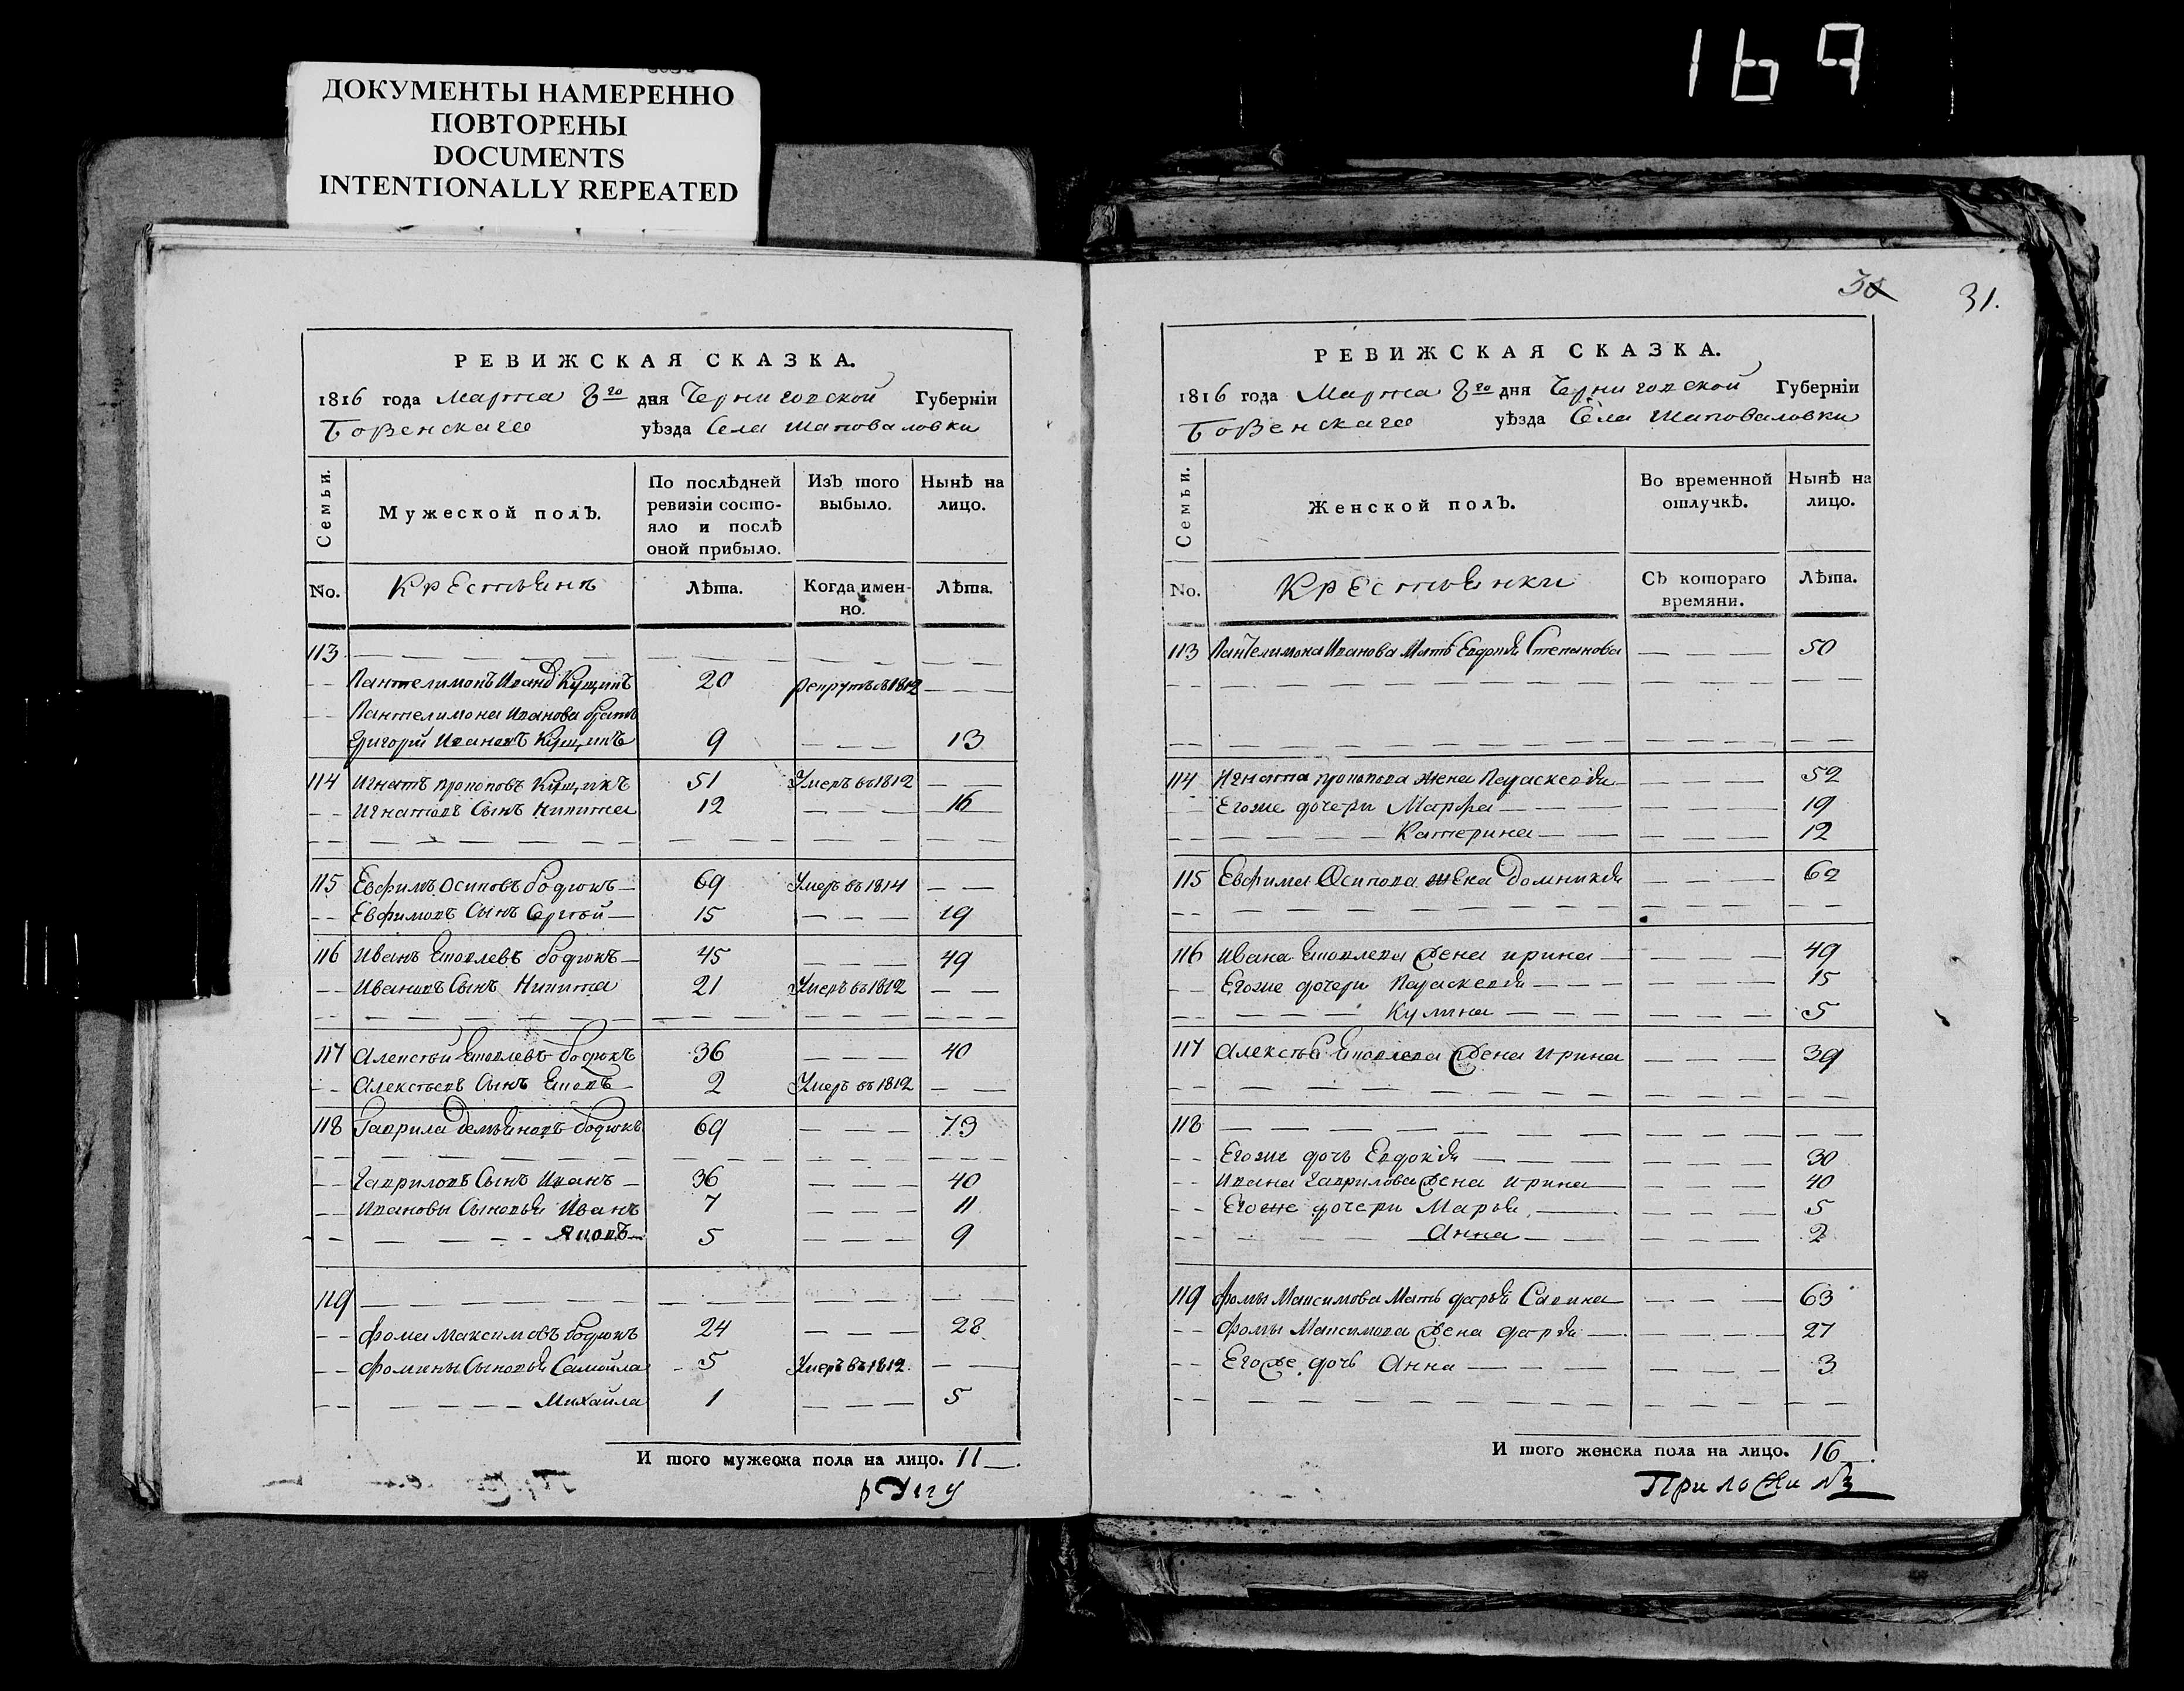 169
ДОКУМЕНТЫ НАМЕРЕННО
ПОВТОРЕНЫ
DOCUMENTS
INTENTIONALLY REPEATED
РЕВИЖСКАЯ СКАЗКА.
1816 года Марта 8го дня Черниговской Губерніи
Борзенскаго уѣзда Села Шаповаловки
Семьи. Мужеской полЪ. По послѣдней ревизіи состояло и послѣ оной прибыло. ИзЪ того выбыло. НынѢ на лицо.
No. Крестьянъ Лѣта. Когда именно. Лѣта.
113
Пантелимонъ Иванов Кущикъ 20 1812
Пантелимона Иванова братъ
Григорій Ивановъ Кущикъ 9 13
114 Игнатъ Прокоповъ Кущикъ 51 Умеръ въ 1812
Игнатовъ Сынъ Никита 12 16
115 Евфимъ Осиповъ Бодюкъ 69 Умеръ въ 1814
Евфимовъ Сынъ Сергѣй 15 19
116 Иванъ Яковлевъ Бодюкъ 45 49
Ивановъ Сынъ Никита 21 Умеръ въ 1812
117 Алексѣй Яковлевъ Бодюкъ 36 40
Алексѣевъ Сынъ Яковъ 2 Умеръ въ 1812
118 Гаврила Демьяновъ Бодюкъ 69 73
Гавриловъ Сынъ Иванъ 36 40
Ивановы Сыновья Иванъ 7 11
Яковъ 5 9
119
Фома Максимовъ Бодюкъ 24 28
Фомины Сыновья Самойла 5 Умеръ въ 1812
Михайла 1 5
И того мужеска пола на лицо. 11
30 31.
РЕВИЖСКАЯ СКАЗКА.
1816 года Марта 8го дня Черниговской Губерніи
Борзенскаго уѣзда Села Шаповаловки
Семьи. Женской полЪ. Во временной отлучкѢ. НынѢ на лицо.
No. Крестьянки СЪ котораго времяни. Лѣта.
113 Пантелимона Иванова Мать Степанова 50
114 Игната Прокопова жена Параскевія 52
Егоже дочери Марфа 19
Катерина 12
115 Евфима Осипова жена Домникія 62
116 Ивана Яковлева жена Ирина 49
Егоже дочери Параскевія 15
Кулина 5
117 Алексѣя Яковлева жена Ирина 39
118
Егоже дочь Евдокія 30
Ивана Гаврилова жена Ирина 40
Егоже дочери Марья 5
Анна 2
119 Фомы Максимова Мать Дарья Савина 63
Фомы Максимова жена Дарья 27
Егоже дочь Анна 3
И того женска пола на лицо. 16
Приложилъ